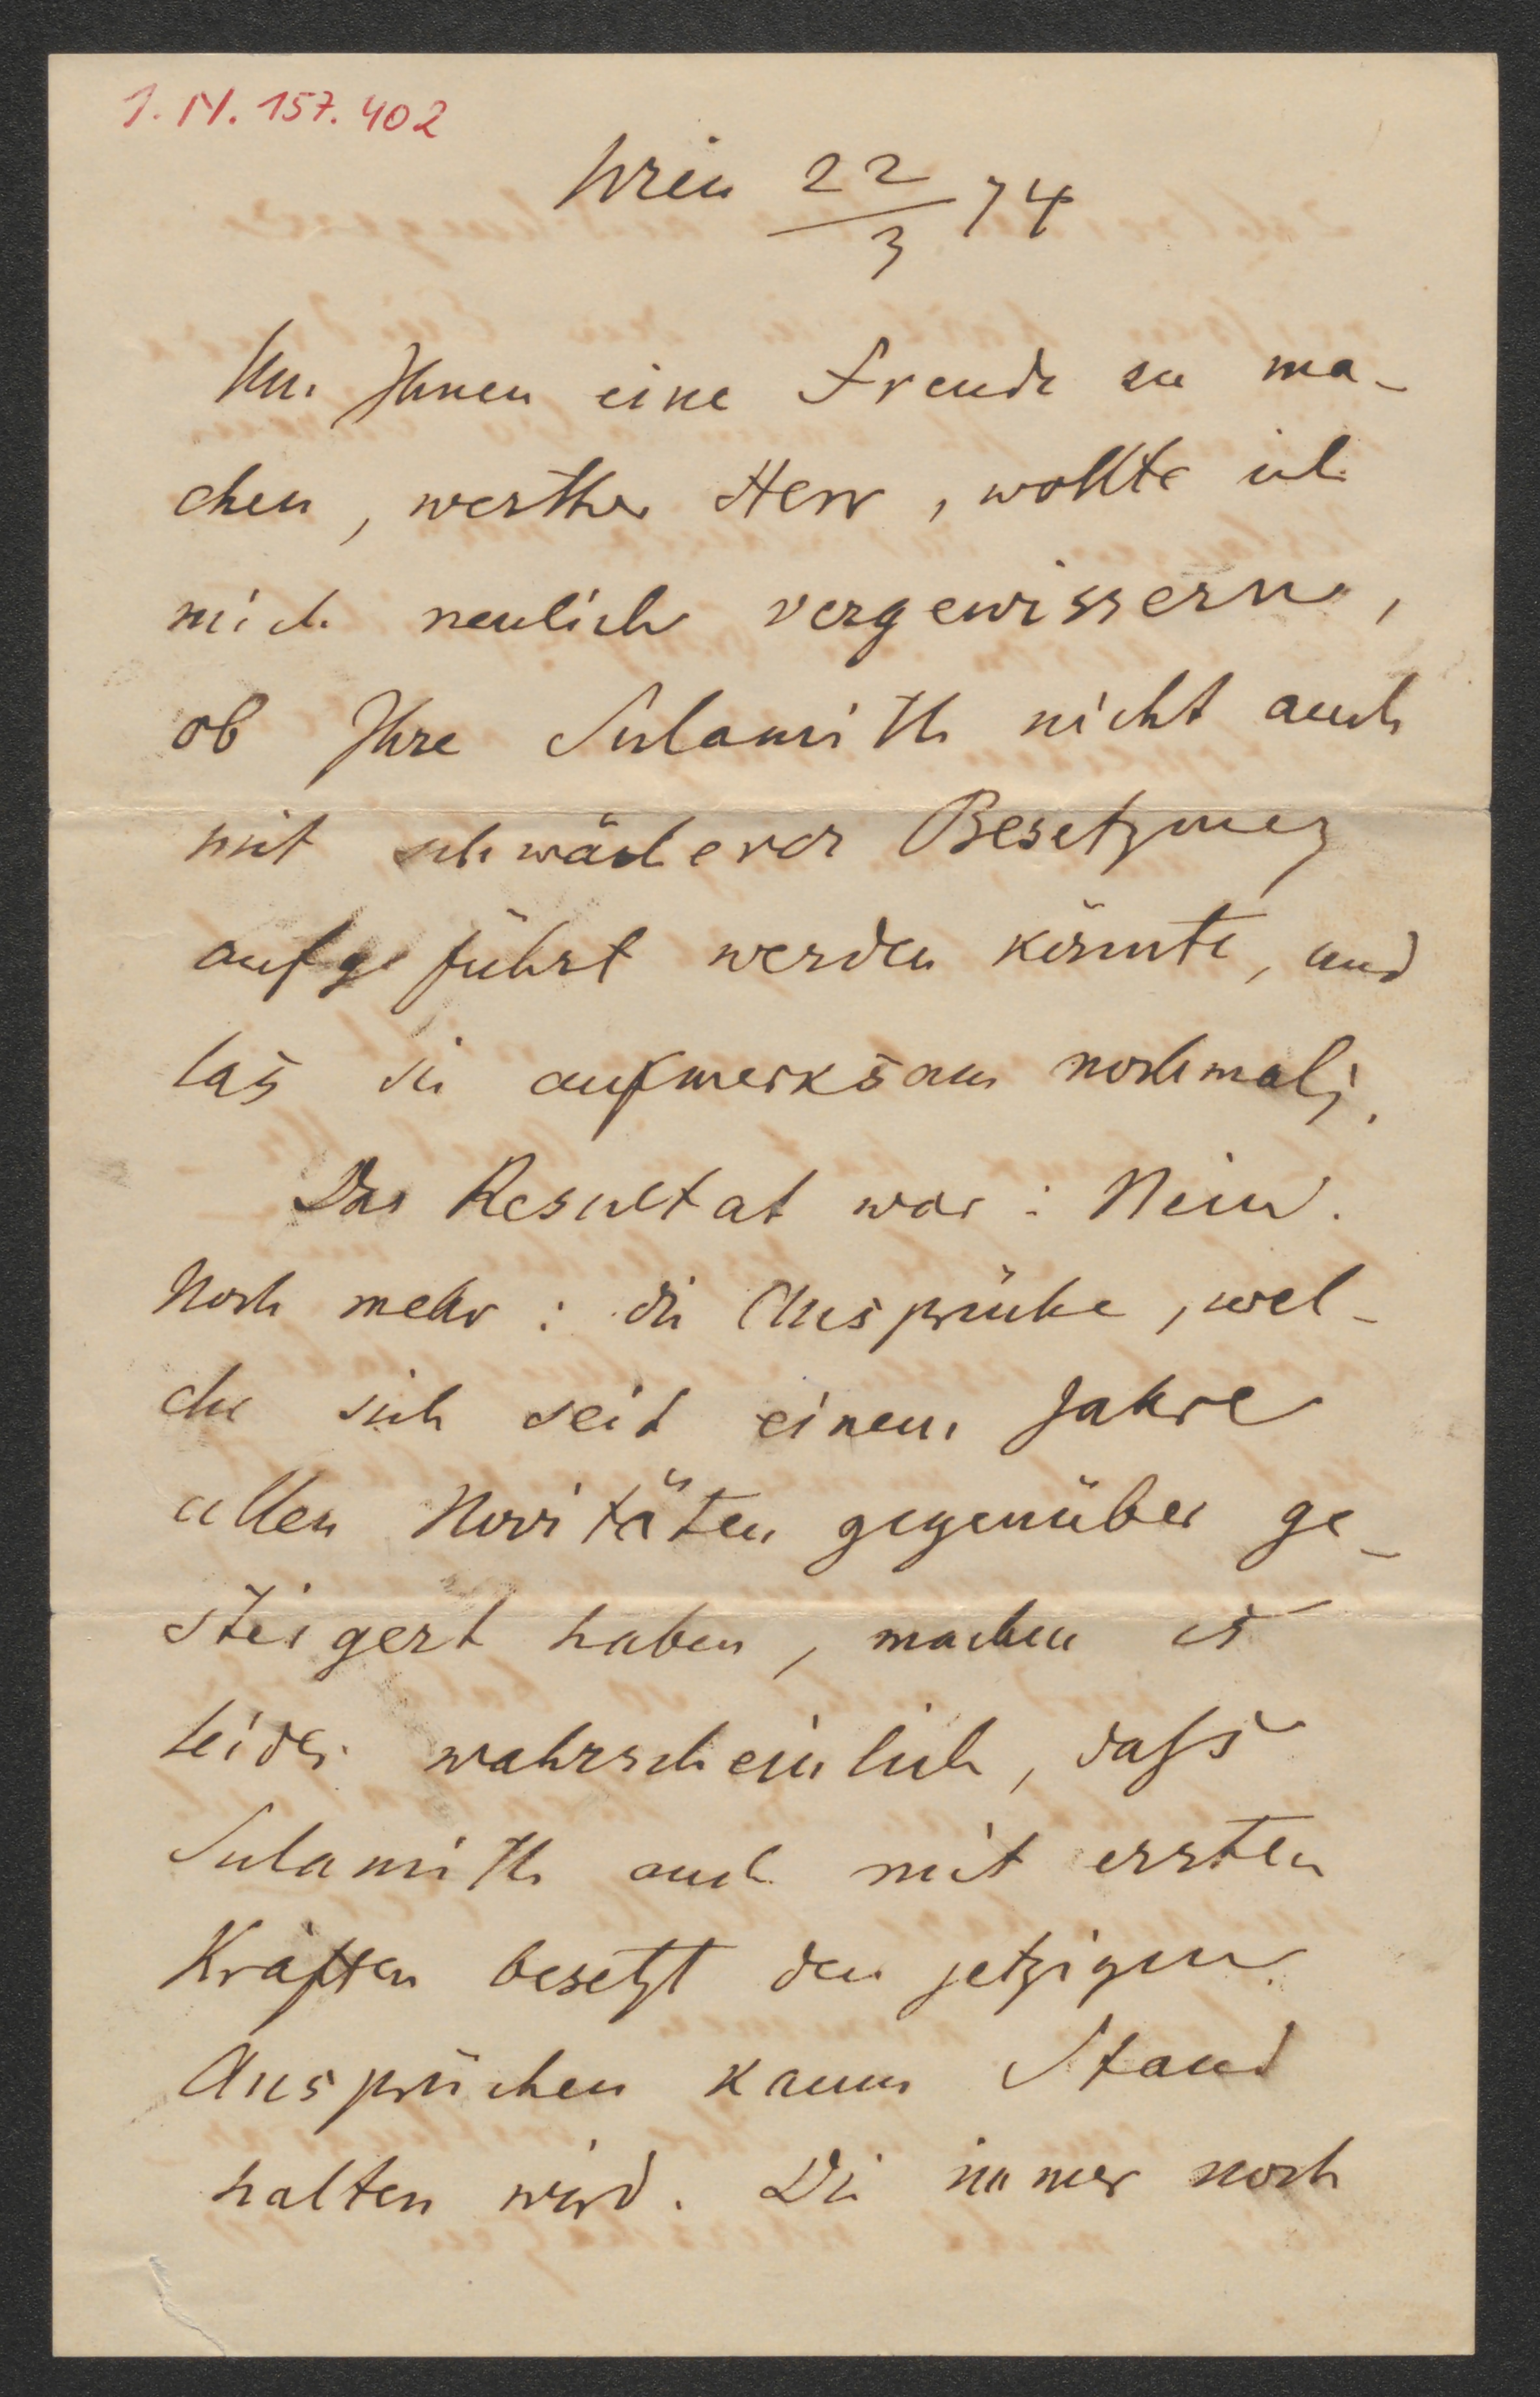 I. N. 157.402
Wien 22/3 74
Um Ihnen eine Freude zu ma-
chen, werther Herr, wollte ich
mich neulich vergewissern,
ob Ihre Sulamith nicht auch
mit schwächerer Besetzung
aufgeführt werden könnte, und
las sie aufmerksam nochmals.
Das Resultat war: Nein.
Noch mehr: die Ansprüche, wel-
che sich seit einem Jahre
allen Novitäten gegenüber ge-
steigert haben, machen es
leider wahrscheinlich, dass
Sulamith auch mit ersten
Kräften besetzt den jetzigen
Ansprüchen kaum Stand
halten wird. Die immer noch